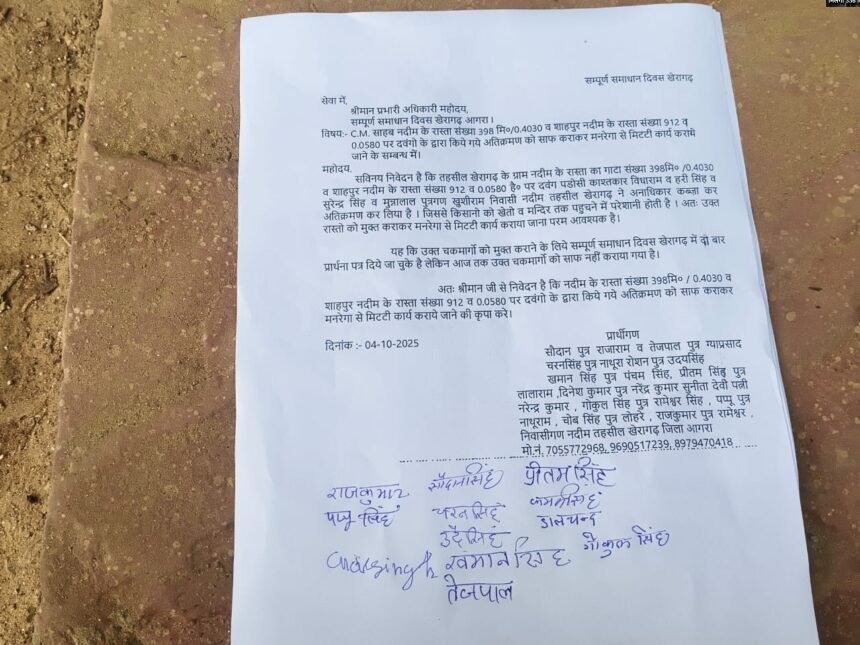 सम्पूर्ण समाधान दिवस खेरागढ़
सेवा में,
श्रीमान प्रभारी अधिकारी महोदय,
सम्पूर्ण समाधान दिवस खेरागढ़ आगरा।
विषयः- C.M. साहब नदीम के रास्ता संख्या 398 मि०/0.4030 व शाहपुर नदीम के रास्ता संख्या 912 व
0.0580 पर दवंगो के द्वारा किये गये अतिक्रमण को साफ कराकर मनरेगा से मिटटी कार्य कराये
जाने के सम्बन्ध में।
महोदय,
सविनय निवेदन है कि तहसील खेरागढ़ के ग्राम नदीम के रास्ता का गाटा संख्या 398मि० /0.4030
व शाहपुर नदीम के रास्ता संख्या 912 व 0.0580 है० पर दवंग पडोसी काश्तकार विधाराम व हरी सिंह व
सुरेन्द्र सिंह व मुन्नालाल पुत्रगण खुशीराम निवासी नदीम तहसील खेरागढ़ ने अनाधिकार कब्जा कर
अतिक्रमण कर लिया है। जिससे किसानो को खेतो व मन्दिर तक पहुचने में परेशानी होती है। अतः उक्त
रास्तो को मुक्त कराकर मनरेगा से मिटटी कार्य कराया जाना परम आवश्यक है।
यह कि उक्त चकमार्गो को मुक्त कराने के लिये सम्पूर्ण समाधान दिवस खेरागढ़ में दो बार
प्रार्थना पत्र दिये जा चुके है लेकिन आज तक उक्त चकमार्गो को साफ नहीं कराया गया है।
अतः श्रीमान जी से निवेदन है कि नदीम के रास्ता संख्या 398मि० / 0.4030 व
शाहपुर नदीम के रास्ता संख्या 912 व 0.0580 पर दवंगो के द्वारा किये गये अतिक्रमण को साफ कराकर
मनरेगा से मिटटी कार्य कराये जाने की कृपा करे।
दिनांक :- 04-10-2025
प्रार्थीगण
सौदान पुत्र राजाराम व तेजपाल पुत्र ग्याप्रसाद
चरनसिंह पुत्र नाथूरा रोशन पुत्र उदयसिंह
खमान सिंह पुत्र पंचम सिंह, प्रीतम सिंह पुत्र
लालाराम ,दिनेश कुमार पुत्र नरेंद्र कुमार सुनीता देवी पत्नी
नरेन्द्र कुमार , गोकुल सिंह पुत्र रामेश्वर सिंह , पप्पू पुत्र
नाथूराम , चोब सिंह पुत्र लोहरे , राजकुमार पुत्र रामेश्वर ,
निवासीगण नदीम तहसील खेरागढ़ जिला आगरा
मो.नं. 7055772968, 9690517239, 8979470418
राजकुमार सौदानसिंह प्रीतम सिंह
पप्पू सिंह चरनसिंह
डालचन्द
उदैसिंह
गोकुल सिंह
खमान सिंह
तेजपाल